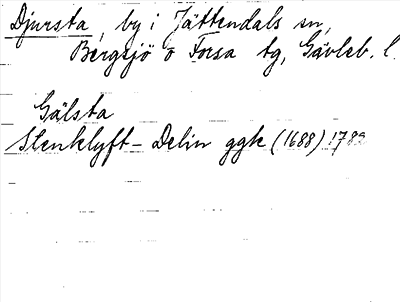 Djursta, by i Jättendals sn,
Bergsjö o Forsa tg, Gävleb. l.
Gälsta
Stenklyft - Delin ggk (1688) 1782